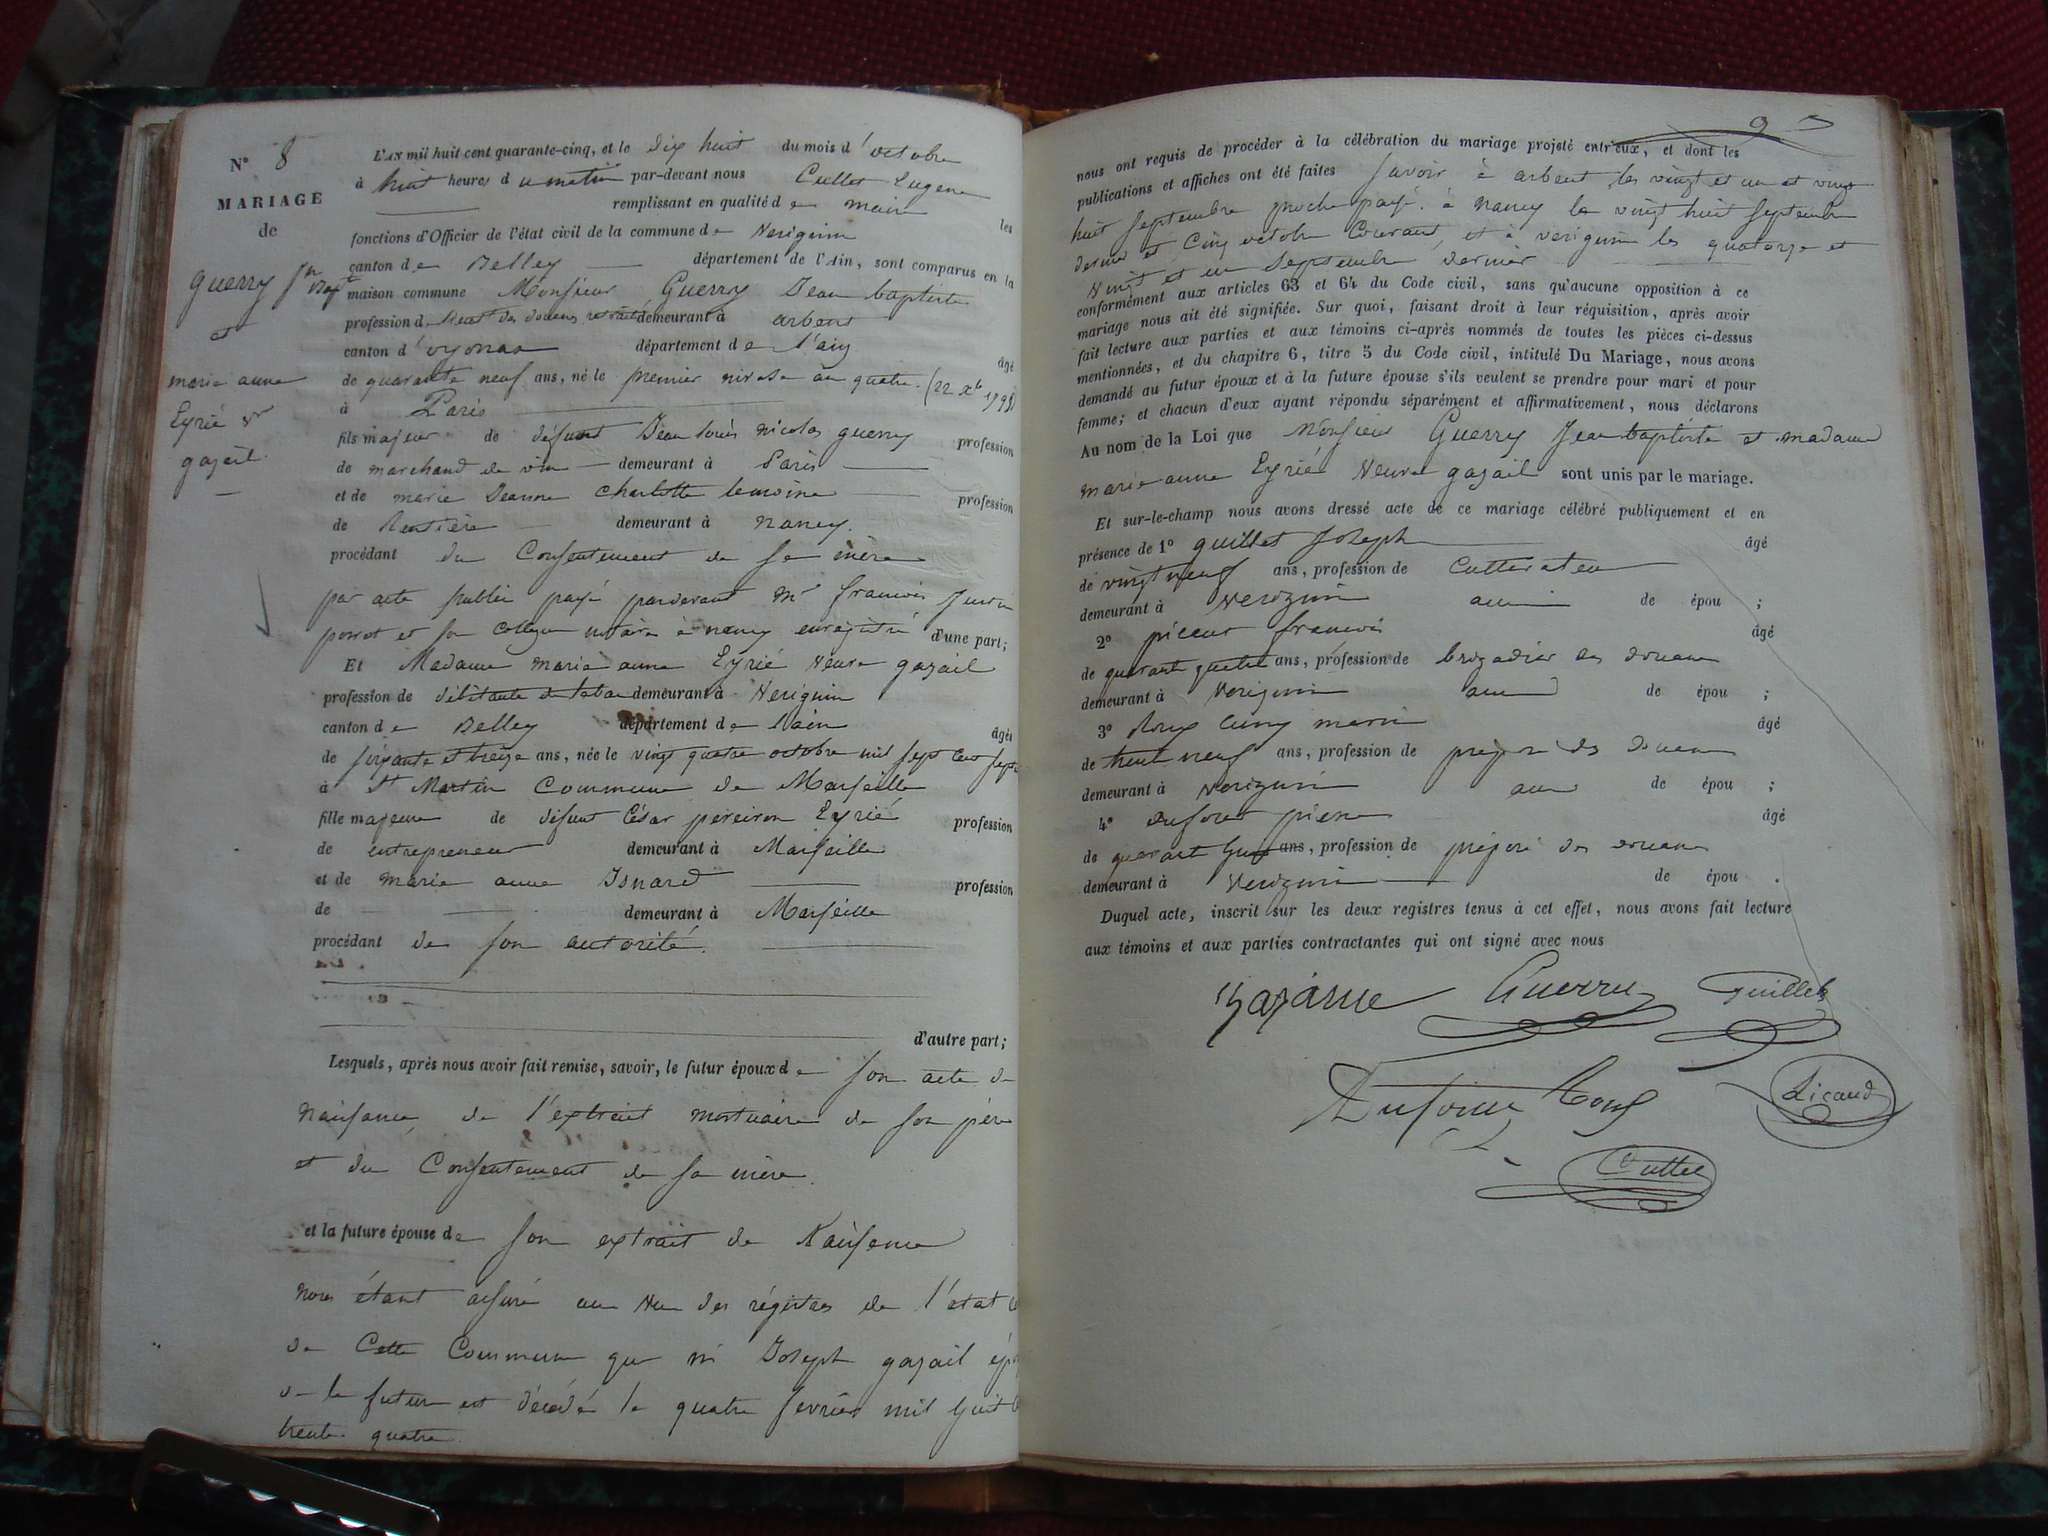 N° 8
MARIAGE
de
guerry Jn Bapt
et
marie anne
Eyrié Ve
gazail
L'AN mil huit cent quarante-cinq, et le dix huit du mois d'octobre
à huit heures du matin par-devant nous Cullet Eugene
remplissant en qualité de maire les
fonctions d'Officier de l'état civil de la commune de Virignin
canton de Belley département de l'Ain, sont comparus en la
maison commune Monsieur Guerry Jean baptiste
profession de des douanes retraité demeurant à arbent
canton d'oyonax département de l'ain
âgé
de quarante neuf ans, né le premier nivose an quatre (22 Xbre 1795)
à Paris
fils majeur de défunt Jean louis nicolas guerry profession
de marchand de vin demeurant à Paris
et de marie Jeanne charlotte lemoine profession
de Rentière demeurant à nancy.
procédant du Consentement de sa mère
par acte public passé pardevant Me francois
et son collegue notaire à nancy enregistré d'une part;
Et Madame marie anne Eyrié Veuve gazail
profession de débitante de tabac demeurant à Virignin
canton de Belley département de l'ain
âgée
de soixante et treize ans, née le vingt quatre octobre mil sept cent
à St Martin Commune de Marseille
fille majeure de défunt César Eyrié profession
de entrepreneur demeurant à Marseille
et de marie anne Isnard profession
de demeurant à Marseille
procédant de son autorité.
d'autre part;
Lesquels, après nous avoir fait remise, savoir, le futur époux de son acte de
naissance, de l'extrait mortuaire de son père
et du Consentement de sa mère.
et la future épouse de son extrait de Naissance
nous étant assuré au vu des régistres de l'état
de Cette Commune que Joseph gazail
de la future est décédé le quatre fevrier mil huit
trente quatre.
9
nous ont requis de procéder à la célébration du mariage projeté entr'eux, et dont les
publications et affiches ont été faites savoir à arbent les vingt et un et vingt
huit septembre proche passé. à nancy le vingt huit septembre
dernier et cinq octobre Courant, et à virignin les quatorze et
vingt et un septembre dernier
conformément aux articles 63 et 64 du Code civil, sans qu'aucune opposition à ce
mariage nous ait été signifiée. Sur quoi, faisant droit à leur réquisition, après avoir
fait lecture aux parties et aux témoins ci-après nommés de toutes les pièces ci-dessus
mentionnées, et du chapitre 6, titre 5 du Code civil, intitulé Du Mariage, nous avons
demandé au futur époux et à la future épouse s'ils veulent se prendre pour mari et pour
femme; et chacun d'eux ayant répondu séparément et affirmativement, nous déclarons
Au nom de la Loi que Monsieur Guerry Jean baptiste et madame
marie anne Eyrié Veuve gazail sont unis par le mariage.
Et sur-le-champ nous avons dressé acte de ce mariage célébré publiquement et en
présence de 1° guillet Joseph âgé
de vingt neuf ans, profession de Cultivateur
demeurant à Virignin ami de épou ;
2° francois âgé
de quarante quatre ans, profession de brigadier des douanes
demeurant à Virignin ami de épou ;
3° Roux marin âgé
de trente neuf ans, profession de préposé des douanes
demeurant à Virignin ami de épou ;
4° pierre âgé
de quarante huit ans, profession de préposé des douanes
demeurant à Virignin de épou .
Duquel acte, inscrit sur les deux registres tenus à cet effet, nous avons fait lecture
aux témoins et aux parties contractantes qui ont signé avec nous
Guerry Guillet
Roux Picaud
Cullet